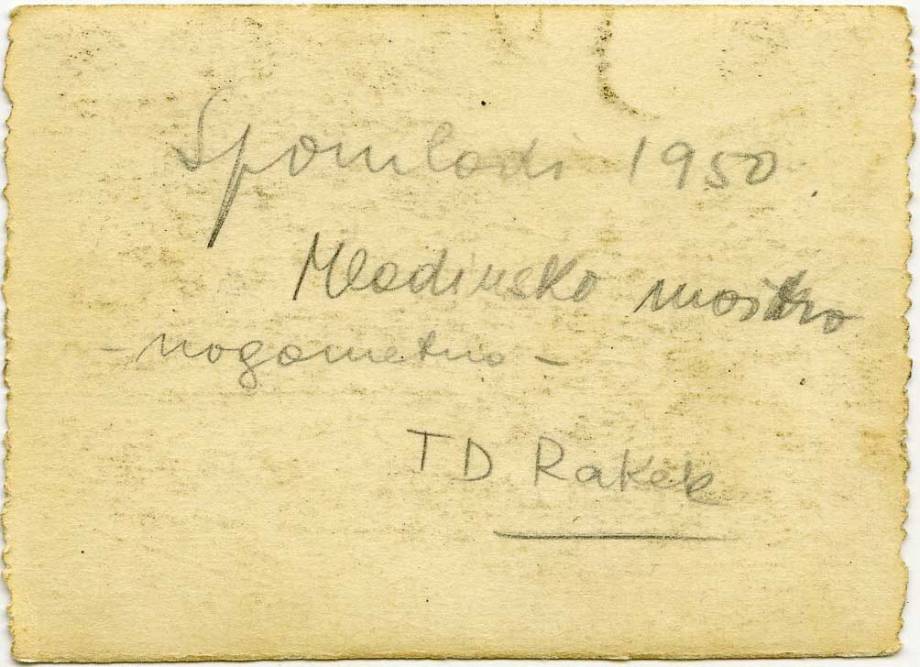 Spomladi 1950
Mladinsko moštvo
- nogometno -
TD Rakek